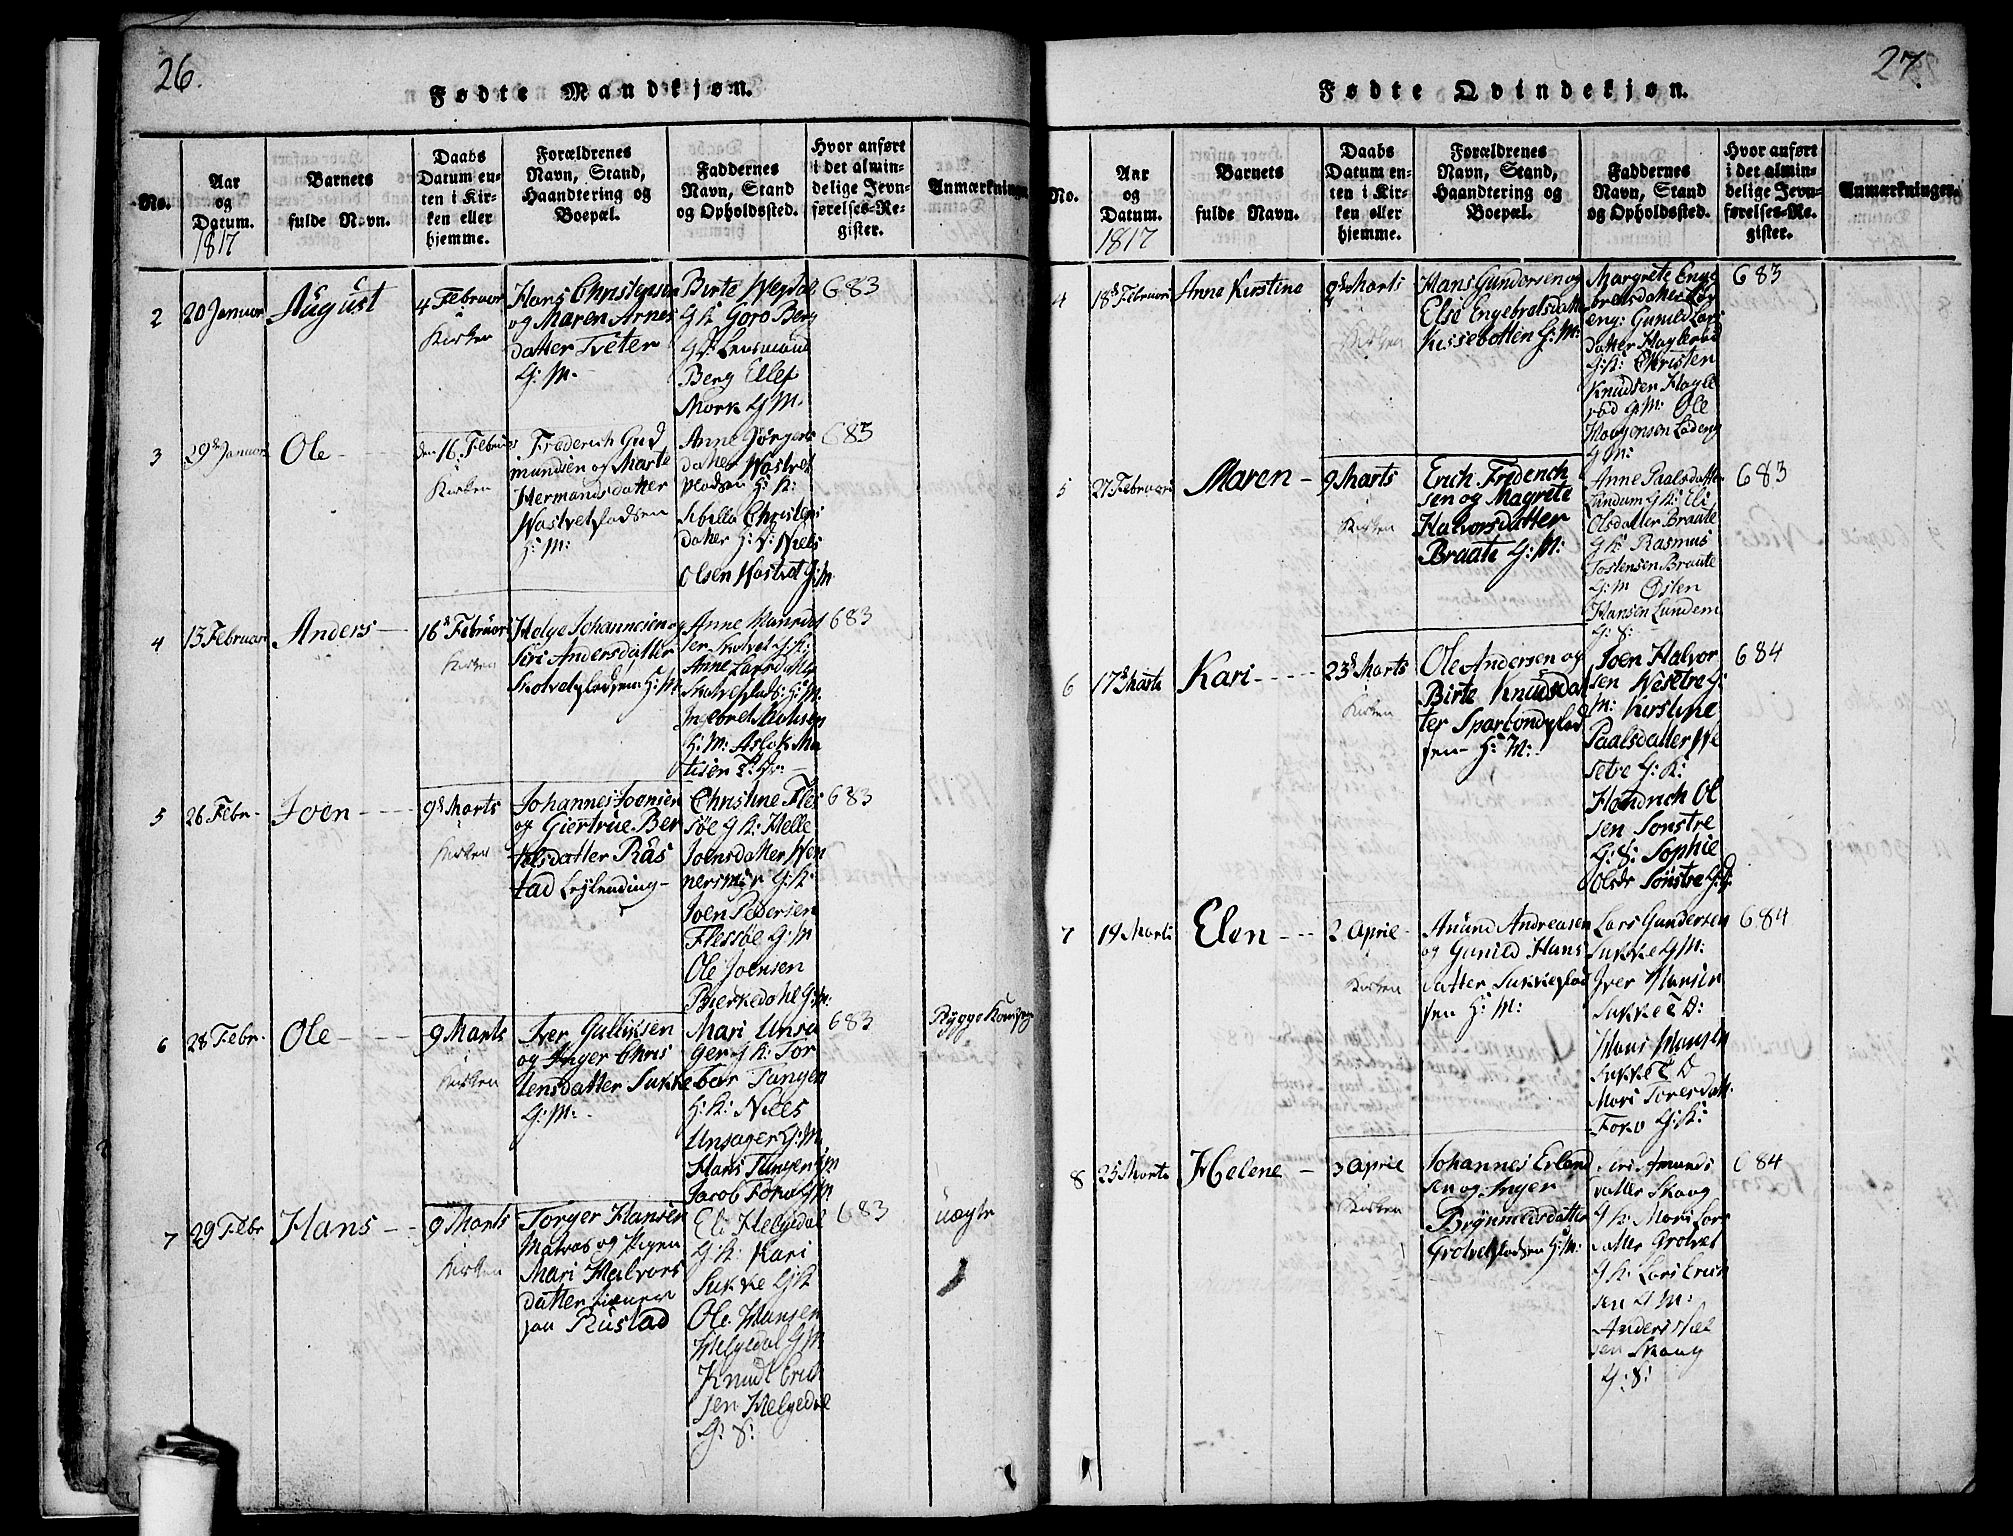 26.
Fødte Mandkjøn.
No.
Aar
og
Datum.
1817
Barnets
fulde Navn.
Daabs
Datum en-
ten i Kir-
ken eller
hjemme.
Forældrenes
Navn, Stand,
Haandtering og
Boepæl.
Faddernes
Navn, Stand
og Opholdssted.
Hvor anført
i det almin-
delige Jevn-
førelses-Re-
gister.
Anmærkninger
2
20 Januar
August
4 Februar
i
Kirken
Hans Christensen
og Maren Arnes
datter Tveter
G: M.
Birte
G K Goro Berg
G P. Lensmand
Berg Ellef
Mork G M.
683
3
29de Januar
Ole
den 16. Februar
i
Kirken
Frederich Gud
mundsen og Marte
Hermansdatter
Wastvetpladsen
H: M:
Anne Jørgens
datter Wastvet
pladsen H: K:
Sibilla Christens
datter H: P: Niels
Olsen Wastvet G: M
683
4
13 Februar
Anders
16de Februar
Kirken
Helge Johannesen og
Siri Andersdatter
Skotvetpladsen H: M
Anne
Skotvet G: K:
Anne Larsdatter
Skotvetplads: H: K
Ingebret
H: M: Aslak Ma
tisen
683
5
26 Febr.
Joen
9de Marts
i
Kirken
Johannes Joensen
og Giertrue Ber
telsdatter Rås
tad Leylending
Christine Fles
søe G K: Helle
Joensdatter Wen
nersmyr G: K:
Joen Pedersen
Flessøe G: M
Ole Joensen
Bierkedahl G: M:
683
6
28 Febr.
Ole
9 Marts
i
Kirken
Iver Gulliksen
og Inger Chris
tensdatter Sukke
G: M:
Mari Unsa
ger G K: Tor
bor Tangen
H: K: Niels
Unsager G: M
Hans Tangen G M
Jacob Foko G: M
683
Rygge
7
29 Febr
Hans
9 Marts
i
Kirken
Torger Hansen
Matros og Pigen
Mari Halvors
datter tiener
paa Rustad
Eli Helgedal
G: K: Kari
Sukke G: K
Ole Hansen
Helgedal G M
Knud Erich
sen Helgedal
G: S:
683
uægte
27.
Fødte Qvindekjøn.
No.
Aar
og
Datum.
1817
Barnets
fulde Navn.
Daabs
Datum en-
ten i Kir-
ken eller
hjemme.
Forældrenes
Navn, Stand,
Haandtering og
Boepæl.
Faddernes
Navn, Stand
og Opholdssted.
Hvor anført
i det almin-
delige Jevn-
førelses-Re-
gister.
Anmærkninger.
4
18de Februari
Anne Kirstine
9de Marts
i
Kirken
Hans Gundersen og
Else Engebretsdatter
Kissebotten G: M:
Margrete Enge
bretsdatter
eng: Gunild Lars
datter Haglerød
G: K: Christen
Knudsen Hagle
rød G: M: Ole
Mogensen Lødeng
G M:
683
5
27 Februari
Maren
9 Marts
i
Kirken
Erich Friderich
sen og Magrete
Halvorsdatter
Braate G: M:
Anne Paalsdatter
Lundum G K: Eli
Olsdatter Braate
G K: Rasmus
Tostensen Braate
G: M Østen
Hansen Lundem
G: S:
683
6
17de Marts
Kari
23de Marts
i
Kirken
Ole Andersen og
Birte Knudsdat
ter Sparbondplad
sen H: M:
Joen Halvor
sen Wesetre G:
M: Kirstine
Paalsdatter We
setre G: K:
Hendrich Ol
sen Sønstre
G: S: Sophie
Olsdr Sønstre G: P:
684
7
19 Marts
Elen
2 April
i
Kirken
Amund Andreasen
og Gunild Hans
datter Sukkeplad
sen H: M:
Lars Gundersen
Sukke G M:
Iver Hansen
Sukke T D:
Hans Hansen
Sukke T D
Mari Toresdatt:
Foko G: K:
684
8
25 Marts
Helene
3 April
i
Kirken
Johannes Erland
sen og Inger
Brynnildsdatter
Grotvetpladsen H: M:
Siri Amunds
datter Skaug
G K: Mari Lars
datter Grotvet
G K: Lars Erich
sen G M:
Anders
sen Skaug
G: S:
684